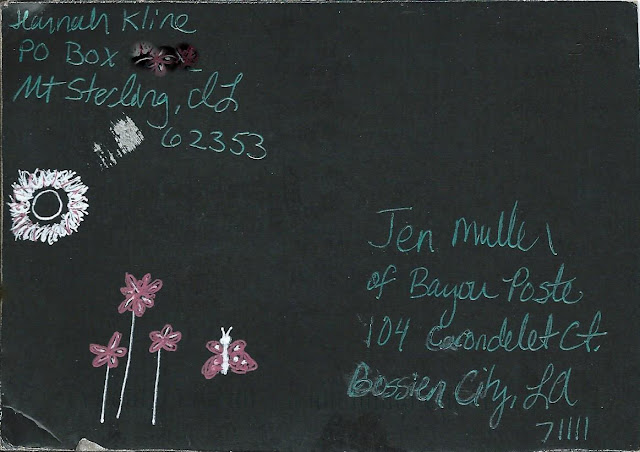 Hannah Kline
PO Box
Mt Sterling, IL
62353
Jen Muller
of Bayou Poste
104 Carondelet Ct.
Bossier City, LA
71111